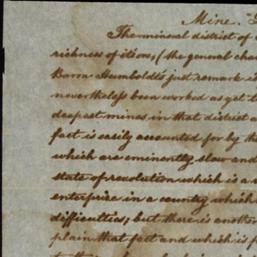 Mine.
The mineral district of
richness of its ores, (the general cha
Baron Humboldt's just remark is
nevertheless been worked as yet t
deepest mines in that district a
fact is easily accounted for by th
which are eminently slow and
state of revolution which is a
enterprise in a country which
difficulties; but there is another
plain that fact and which is f